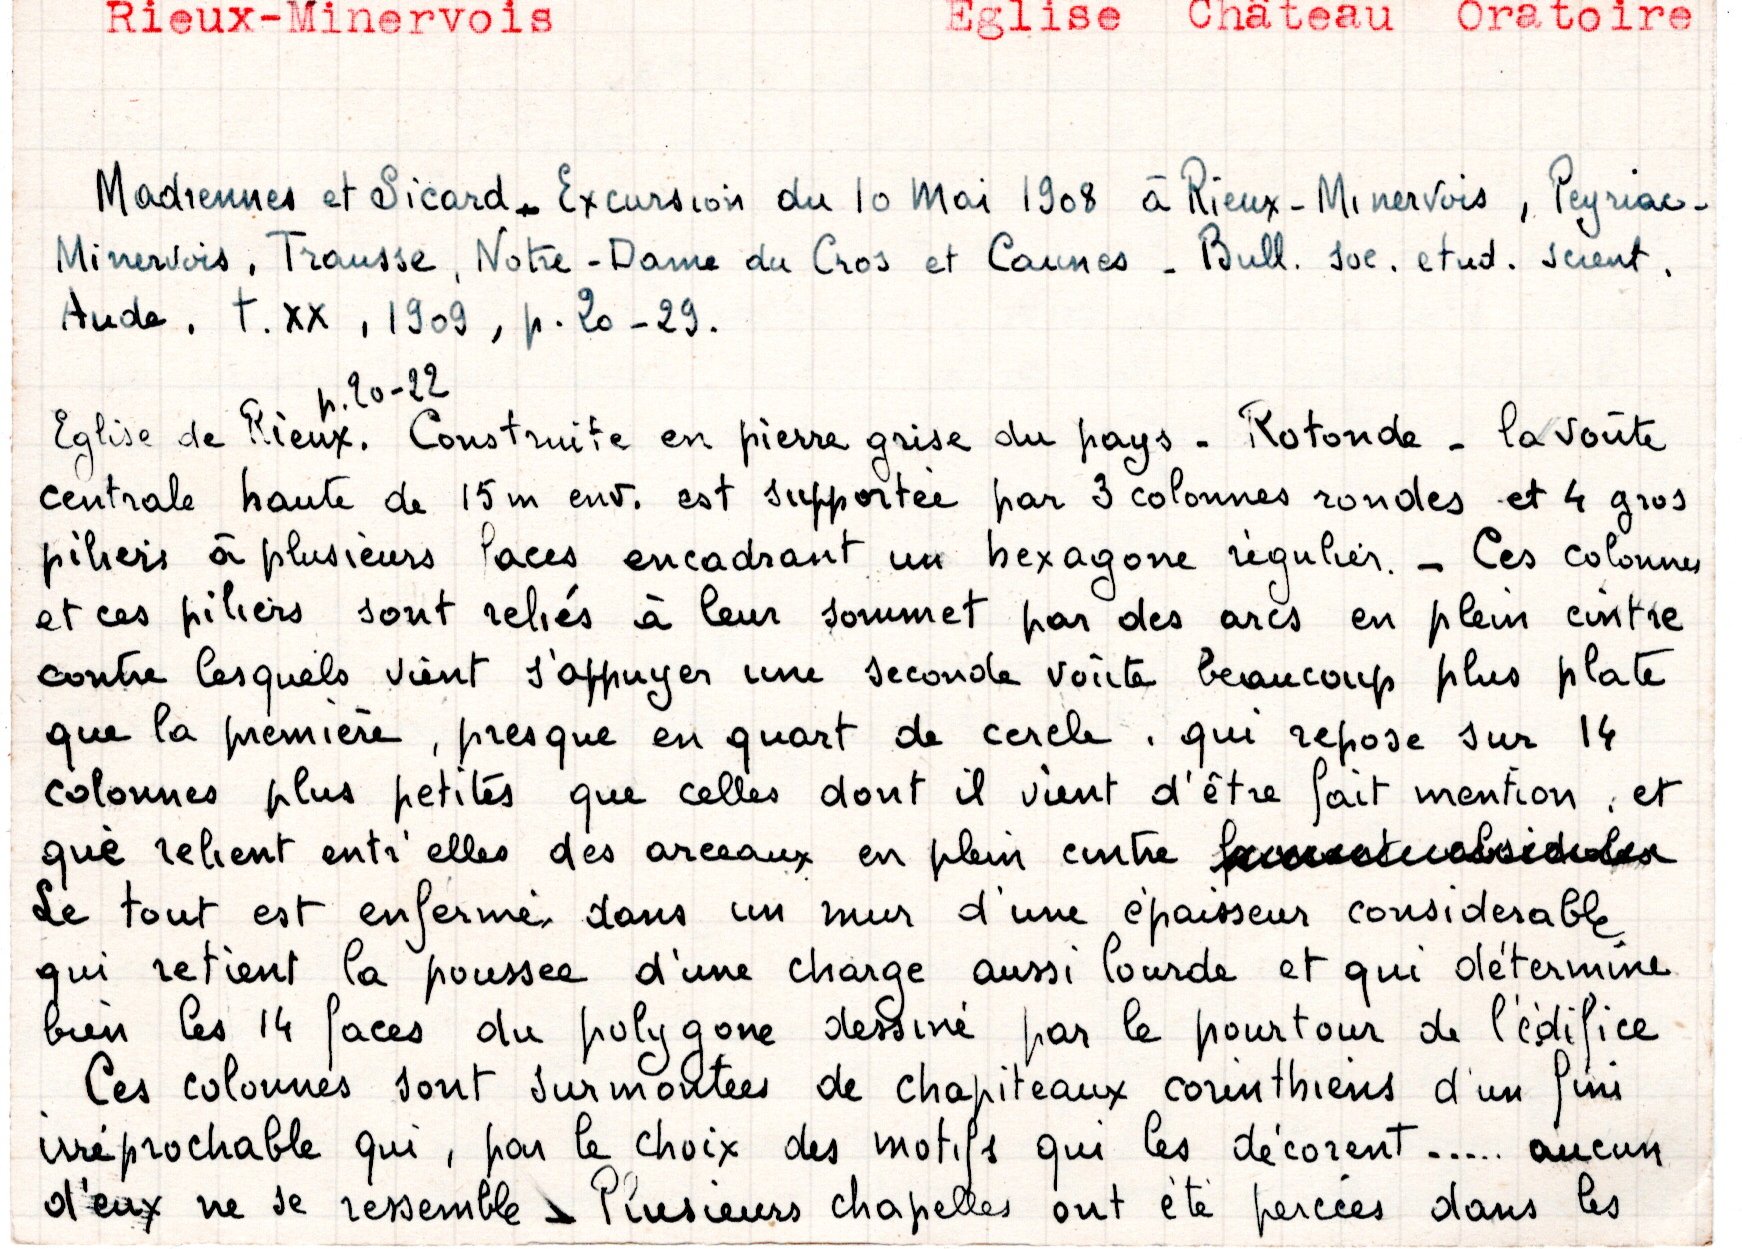 Rieux-Minervois Eglise Château Oratoire
Madrennes et Sicard - Excursion du 10 Mai 1908 à Rieux-Minervois, Peyriac-
Minervois, Trausse, Notre-Dame du Cros et Caunes - Bull. soc. etud. scient.
Aude. t. XX, 1909, p. 20-29.
p. 20-22
Eglise de Rieux. Construite en pierre grise du pays - Rotonde - la voûte
centrale haute de 15m env. est supportée par 3 colonnes rondes et 4 gros
piliers à plusieurs faces encadrant un hexagone régulier. - Ces colonnes
et ces piliers sont reliés à leur sommet par des arcs en plein cintre
contre lesquels vient s'appuyer une seconde voûte beaucoup plus plate
que la première, presque en quart de cercle, qui repose sur 14
colonnes plus petites que celles dont il vient d'être fait mention, et
que relient entr'elles des arceaux en plein cintre
Le tout est enfermé dans un mur d'une épaisseur considerable
qui retient la poussee d'une charge aussi lourde et qui détermine
bien les 14 faces du polygone dessiné par le pourtour de l'édifice
Ces colonnes sont surmontees de chapiteaux corinthiens d'un fini
irréprochable qui, par le choix des motifs qui les décorent ..... aucun
d'eux ne se ressemble - Plusieurs chapelles ont été percées dans les